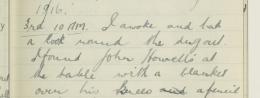 1916.
3rd 10 AM. I awoke and had
a look round the dugout.
I found John Howells at
the table with a blanket
over his knees and a pencil